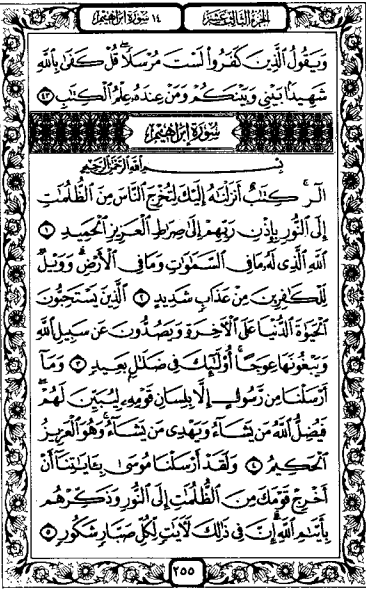 الجزء الثالث عشر
١٤ سورة إبراهيم
وَيَقُولُ الَّذِينَ كَفَرُوا۟ لَسْتَ مُرْسَلًا ۚ قُلْ كَفَىٰ بِاللَّهِ
شَهِيدًۢا بَيْنِى وَبَيْنَكُمْ وَمَنْ عِندَهُۥ عِلْمُ الْكِتَٰبِ ٤٣
سُورَةُ إِبْرَاهِيمَ
بِسْمِ اللَّهِ الرَّحْمَٰنِ الرَّحِيمِ
الٓر ۚ كِتَٰبٌ أَنزَلْنَٰهُ إِلَيْكَ لِتُخْرِجَ النَّاسَ مِنَ الظُّلُمَٰتِ
إِلَى النُّورِ بِإِذْنِ رَبِّهِمْ إِلَىٰ صِرَٰطِ الْعَزِيزِ الْحَمِيدِ ١
اللَّهِ الَّذِى لَهُۥ مَا فِى السَّمَٰوَٰتِ وَمَا فِى الْأَرْضِ ۗ وَوَيْلٌ
لِّلْكَٰفِرِينَ مِنْ عَذَابٍ شَدِيدٍ ٢ الَّذِينَ يَسْتَحِبُّونَ
الْحَيَوٰةَ الدُّنْيَا عَلَى الْءَاخِرَةِ وَيَصُدُّونَ عَن سَبِيلِ اللَّهِ
وَيَبْغُونَهَا عِوَجًا ۚ أُو۟لَٰٓئِكَ فِى ضَلَٰلٍۭ بَعِيدٍ ٣ وَمَآ
أَرْسَلْنَا مِن رَّسُولٍ إِلَّا بِلِسَانِ قَوْمِهِۦ لِيُبَيِّنَ لَهُمْ ۖ
فَيُضِلُّ اللَّهُ مَن يَشَآءُ وَيَهْدِى مَن يَشَآءُ ۚ وَهُوَ الْعَزِيزُ
الْحَكِيمُ ٤ وَلَقَدْ أَرْسَلْنَا مُوسَىٰ بِـَٔايَٰتِنَآ أَنْ
أَخْرِجْ قَوْمَكَ مِنَ الظُّلُمَٰتِ إِلَى النُّورِ وَذَكِّرْهُم
بِأَيَّىٰمِ اللَّهِ ۚ إِنَّ فِى ذَٰلِكَ لَءَايَٰتٍ لِّكُلِّ صَبَّارٍ شَكُورٍ ٥
٢٥٥